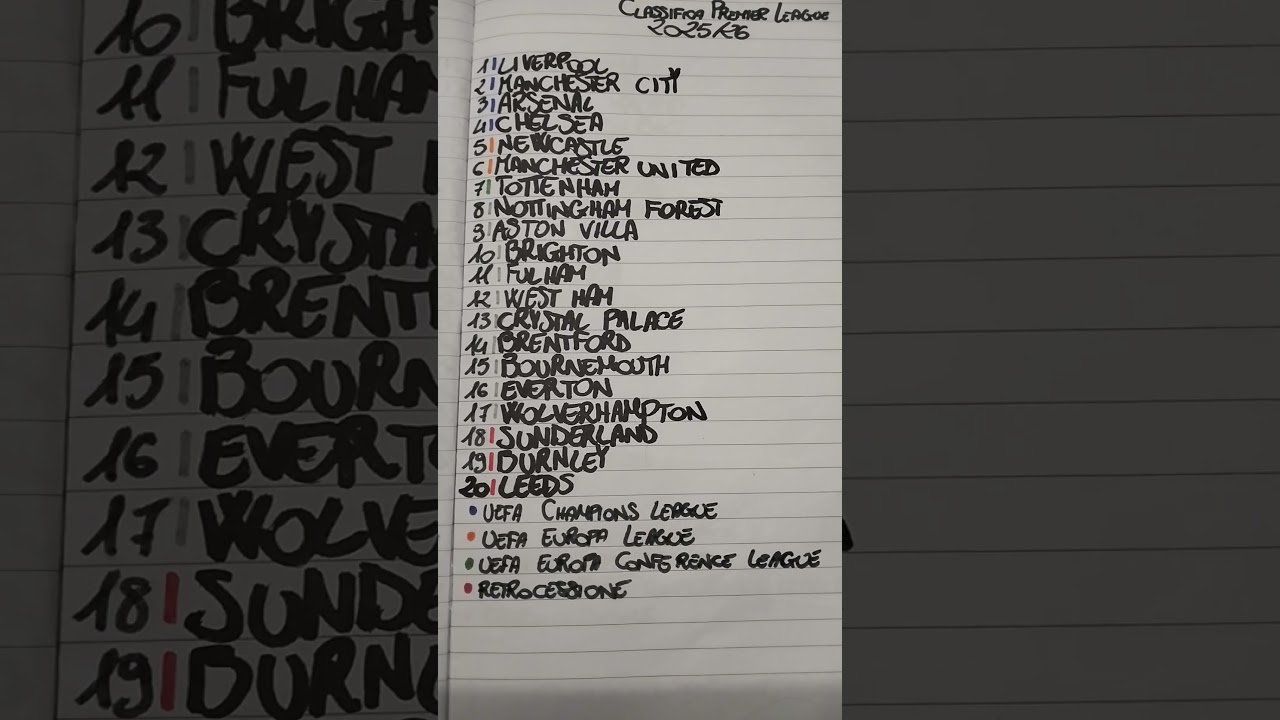 CLASSIFICA PREMIER LEAGUE
2025/26
1 LIVERPOOL
2 MANCHESTER CITY
3 ARSENAL
4 CHELSEA
5 NEWCASTLE
6 MANCHESTER UNITED
7 TOTTENHAM
8 NOTTINGHAM FOREST
9 ASTON VILLA
10 BRIGHTON
11 FULHAM
12 WEST HAM
13 CRYSTAL PALACE
14 BRENTFORD
15 BOURNEMOUTH
16 EVERTON
17 WOLVERHAMPTON
18 SUNDERLAND
19 BURNLEY
20 LEEDS
• UEFA CHAMPIONS LEAGUE
• UEFA EUROPA LEAGUE
• UEFA EUROPA CONFERENCE LEAGUE
• RETROCESSIONE